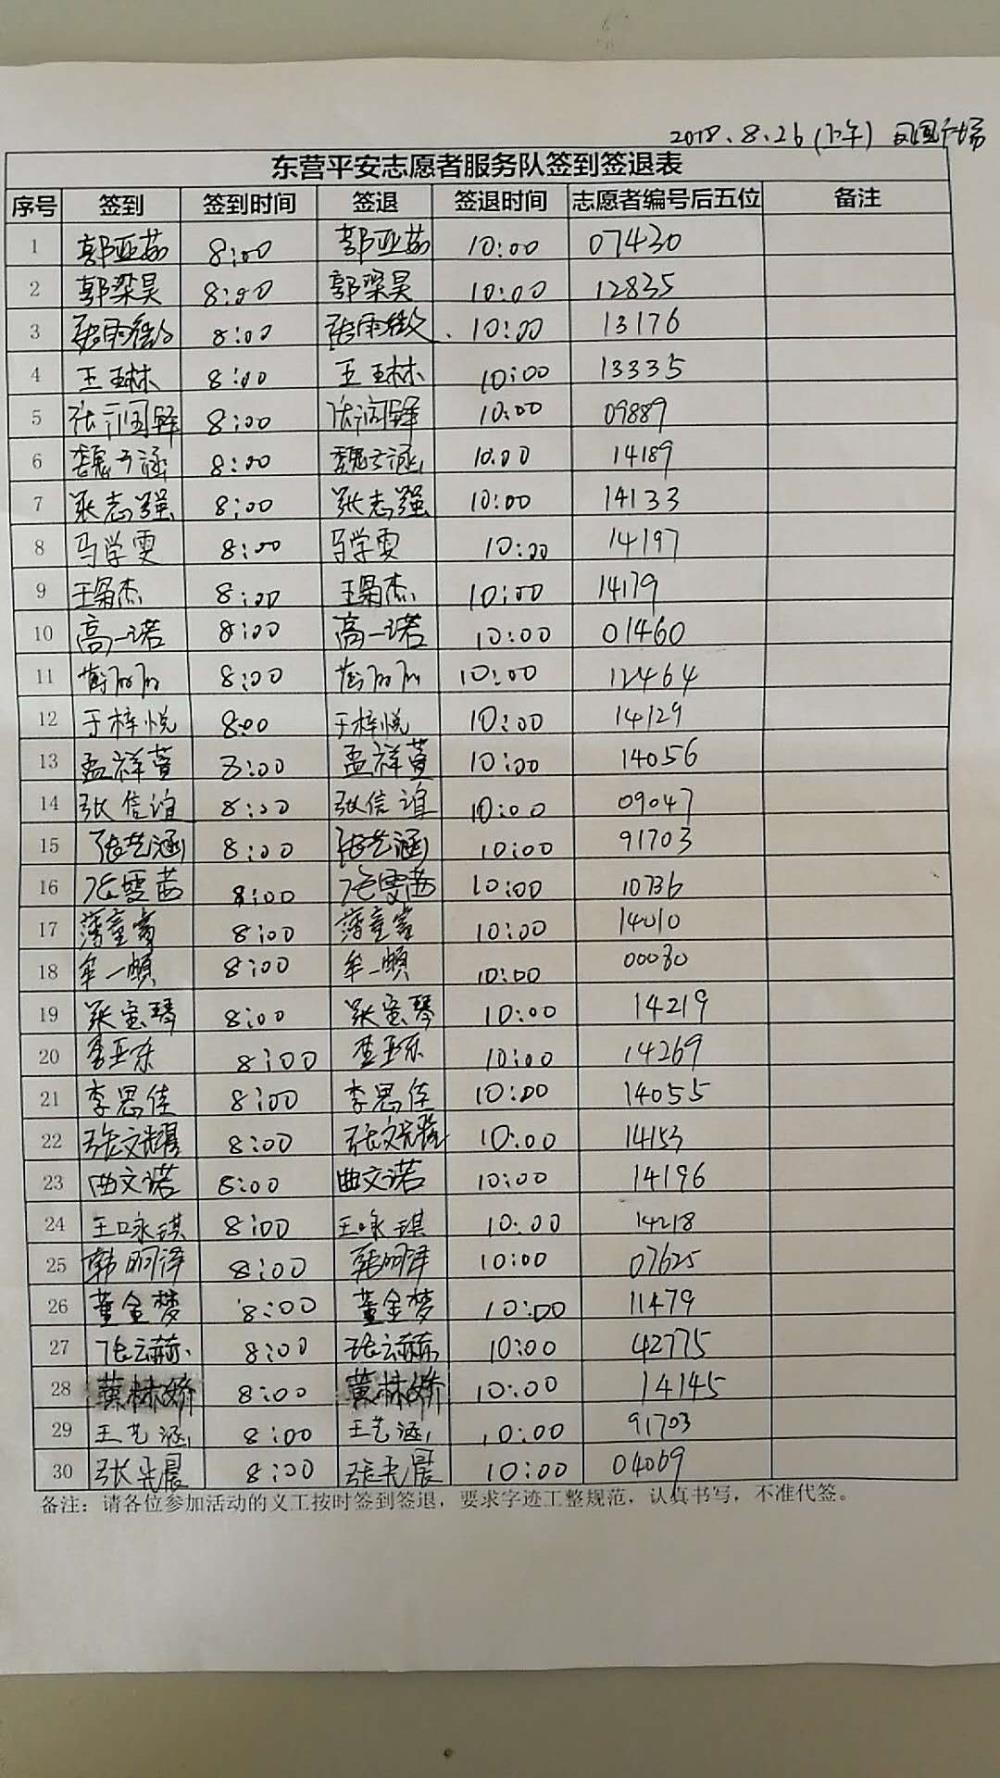 2018.8.26(下午) 凤凰广场
东营平安志愿者服务队签到签退表
序号 签到 签到时间 签退 签退时间 志愿者编号后五位 备注
1 郭亚茹 8:00 郭亚茹 10:00 07430
2 郭梁昊 8:00 郭梁昊 10:00 12835
3 8:00 10:00 13176
4 王玉林 8:00 王玉林 10:00 13335
5 张润铎 8:00 张润铎 10:00 09889
6 魏子涵 8:00 魏子涵 10:00 14189
7 张志强 8:00 张志强 10:00 14133
8 马学雯 8:00 马学雯 10:00 14197
9 8:00 10:00 14179
10 高一诺 8:00 高一诺 10:00 01460
11 8:00 10:00 12464
12 于梓悦 8:00 于梓悦 10:00 14129
13 孟祥萱 8:00 孟祥萱 10:00 14056
14 张信谊 8:00 张信谊 10:00 09047
15 张艺涵 8:00 张艺涵 10:00 91703
16 张雯茜 8:00 张雯茜 10:00 10736
17 8:00 10:00 14010
18 牟一頔 8:00 牟一頔 10:00 00080
19 张宝琴 8:00 张宝琴 10:00 14219
20 李亚东 8:00 李亚东 10:00 14269
21 李思佳 8:00 李思佳 10:00 14055
22 张文耀 8:00 张文耀 10:00 14153
23 曲文诺 8:00 曲文诺 10:00 14196
24 王咏琪 8:00 王咏琪 10:00 14218
25 韩明泽 8:00 韩明泽 10:00 07625
26 董金梦 8:00 董金梦 10:00 11479
27 张云赫 8:00 张云赫 10:00 42775
28 黄林娇 8:00 黄林娇 10:00 14145
29 王艺涵 8:00 王艺涵 10:00 91703
30 张光晨 8:00 张光晨 10:00 04069
备注：请各位参加活动的义工按时签到签退，要求字迹工整规范，认真书写，不准代签。